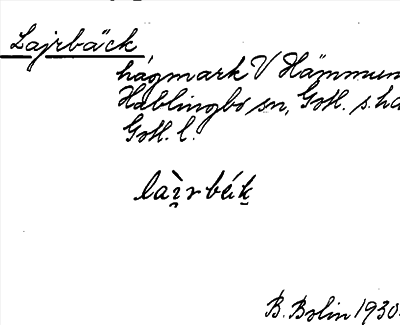 Lajrbäck
hågmark V Hämmun
Hablingbo sn, Gotl. s. hd
Gotl. l.
la̖i̖rbéik̖
B. Bolin 1930.